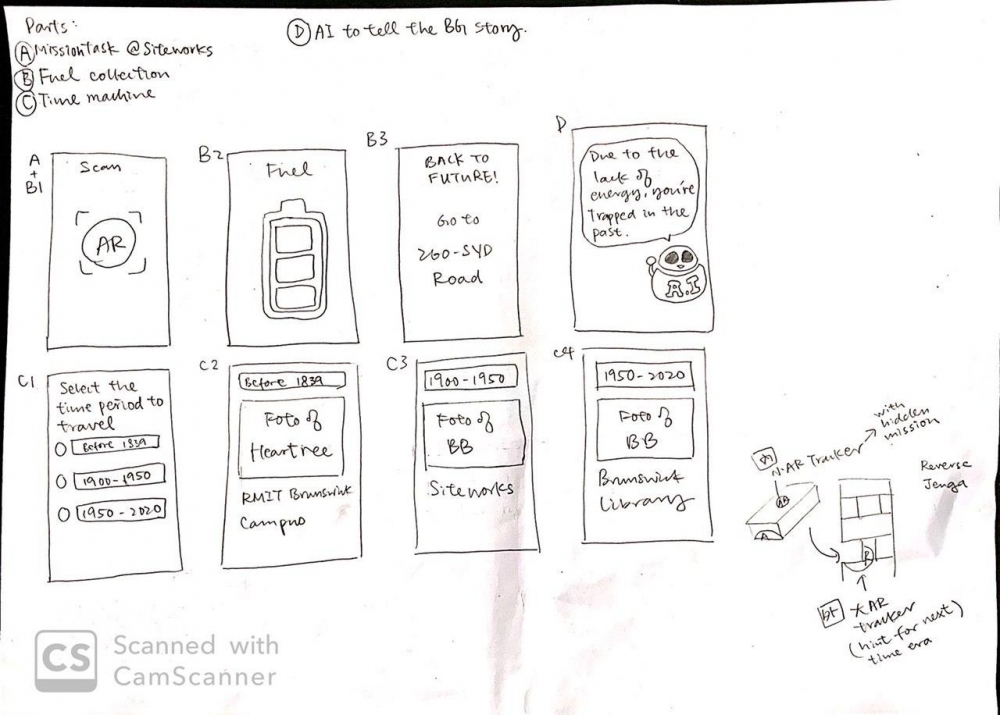 Parts:
Ⓐ Mission Task @ Siteworks
Ⓑ Fuel collection
Ⓒ Time machine
Ⓓ AI to tell the BG story.
A
+
B1
Scan
AR
B2
Fuel
B3
BACK TO
FUTURE!
Go to
260-SYD
Road
D
Due to the
lack of
energy, you're
Trapped in the
past.
A.I
C1
Select the
time period to
travel
Before 1839
1900-1950
1950-2020
C2
Before 1839
Foto of
Heartree
RMIT Brunswick
Campus
C3
1900-1950
Foto of
BB
Siteworks
C4
1950-2020
Foto of
BB
Brunswick
Library
with
hidden
mission
小 AR Tracker
AR
A
Reverse
Jenga
R
大 AR
tracker
(hint for next)
time era
CS Scanned with
CamScanner